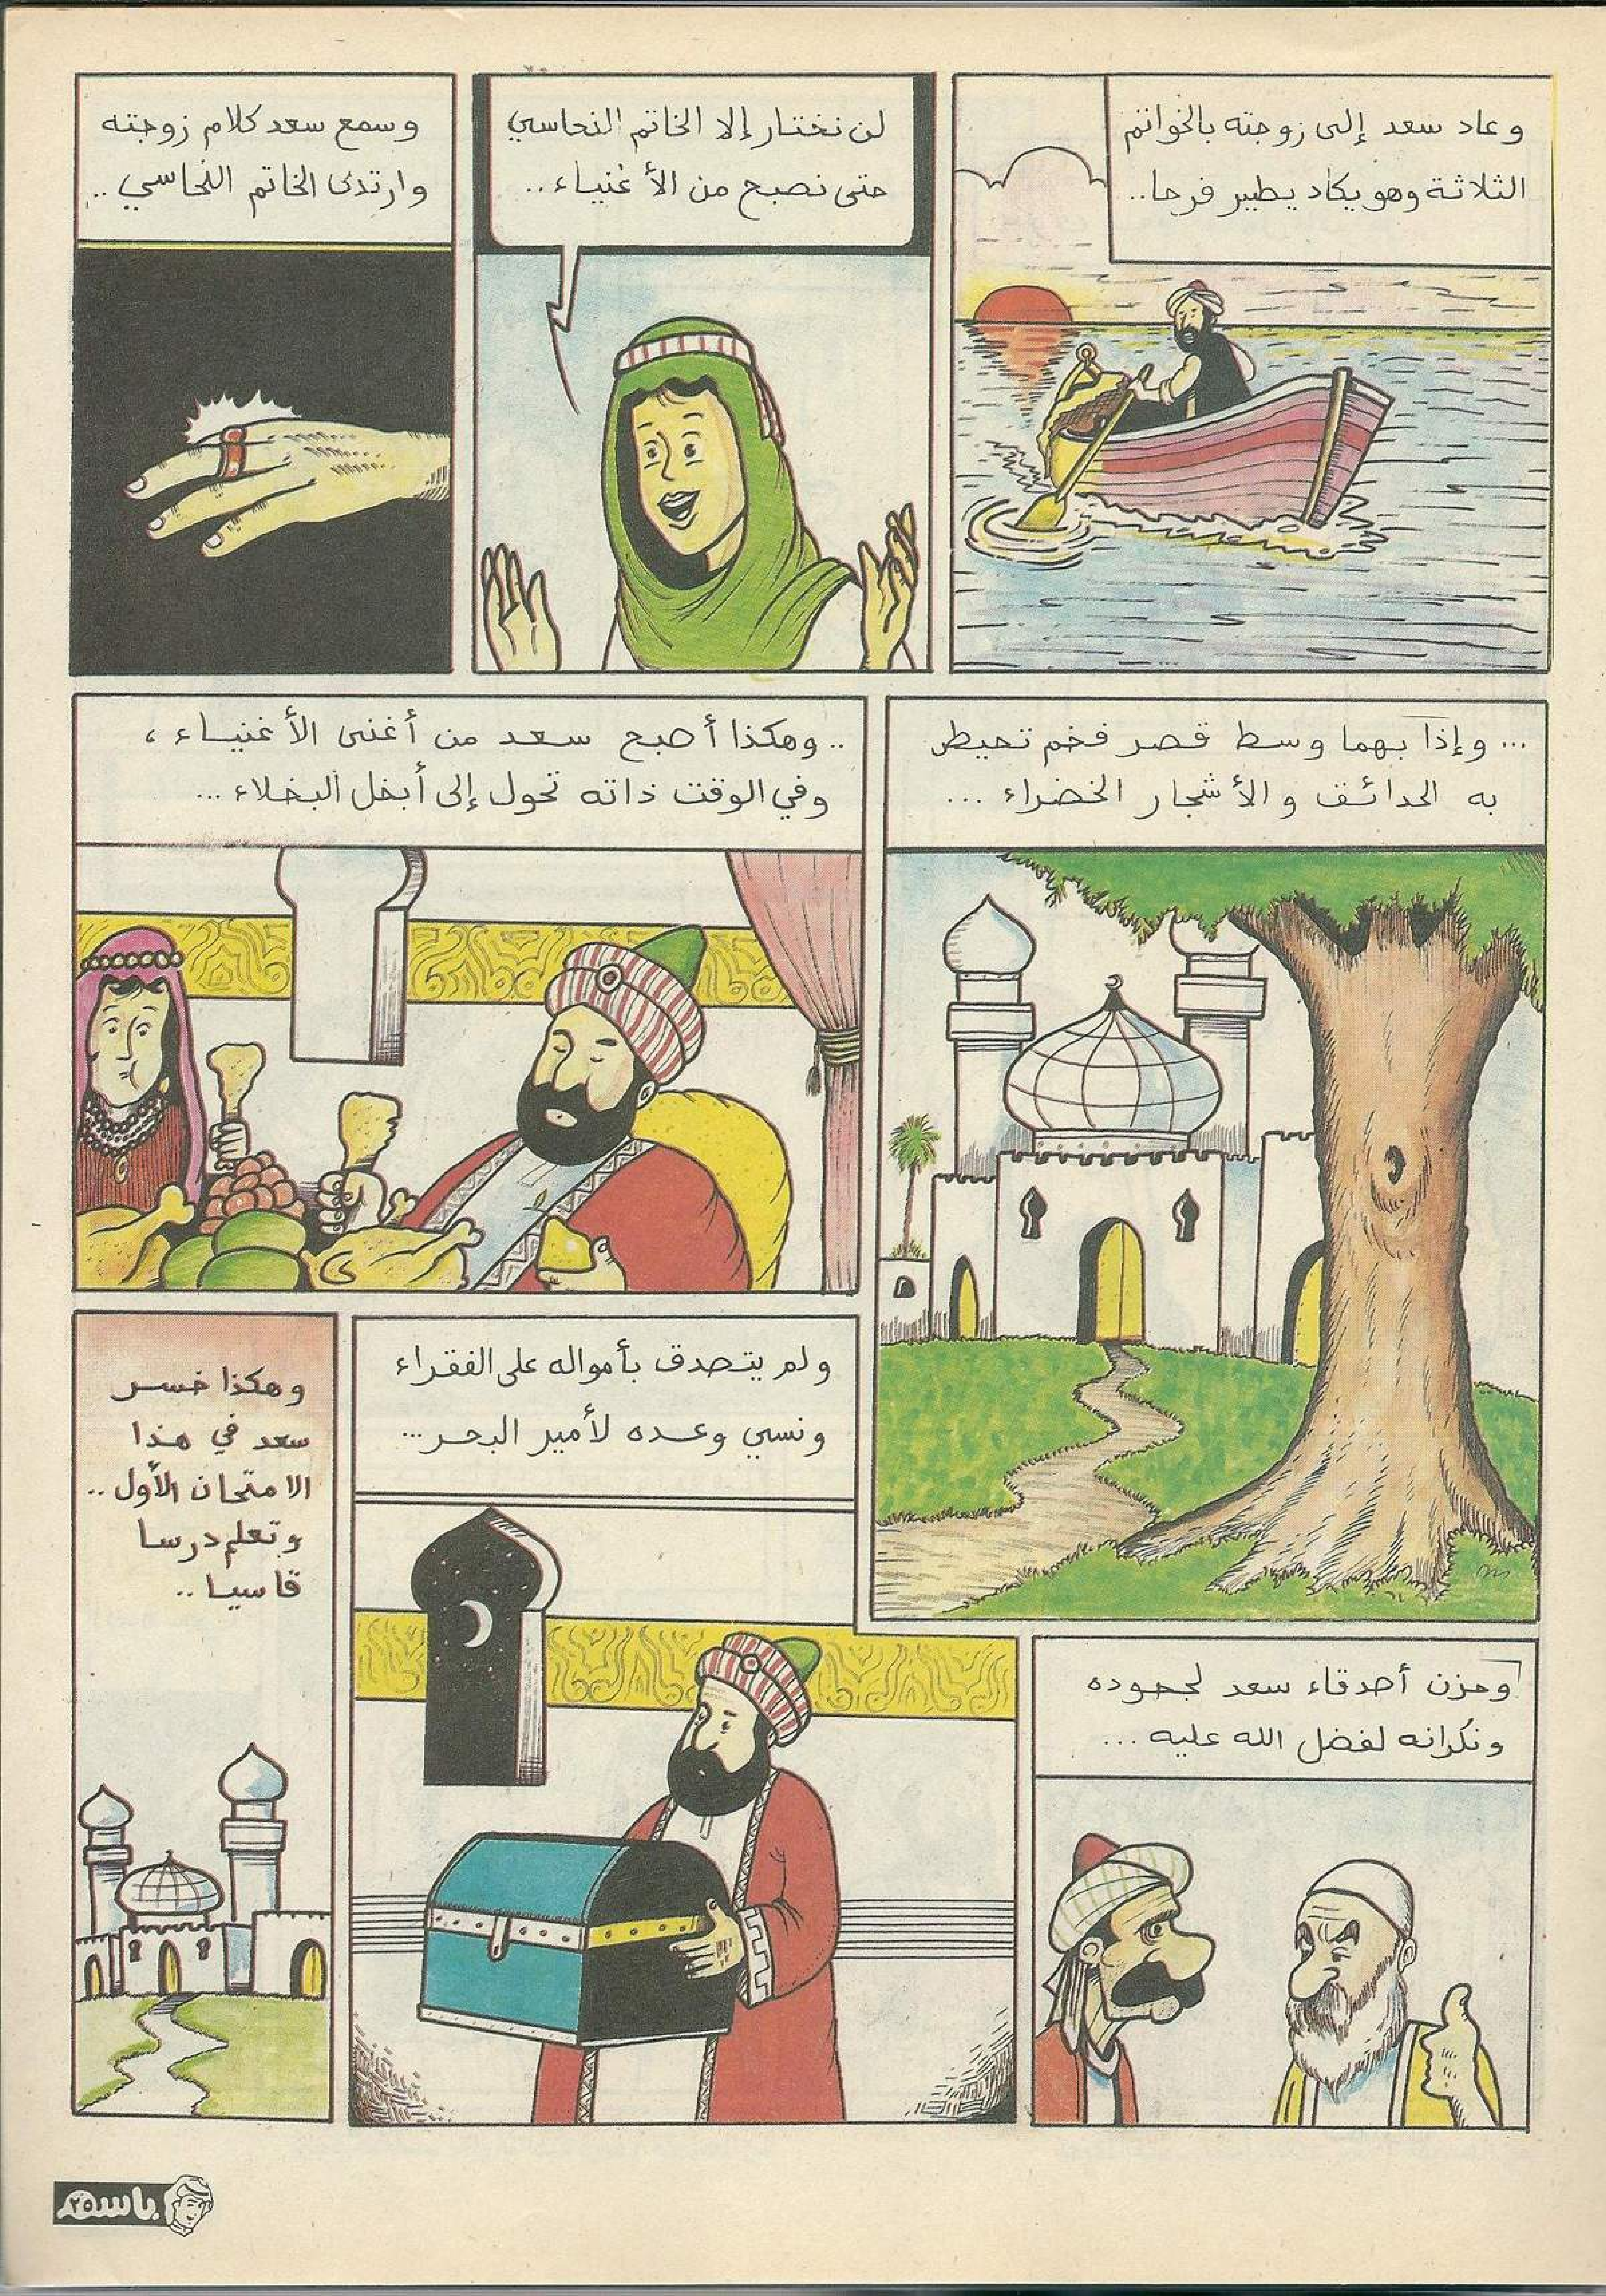 وعاد سعد إلى زوجته بالخواتم
الثلاثة وهو يكاد يطير فرحا..
لن نختار إلا الخاتم النحاسي
حتى نصبح من الأغنياء..
وسمع سعد كلام زوجته
وارتدى الخاتم النحاسي..
... وإذا بهما وسط قصر فخم تحيط
به الحدائق والأشجار الخضراء ...
.. وهكذا أصبح سعد من أغنى الأغنياء ،
وفي الوقت ذاته تحول إلى أبخل البخلاء ...
ولم يتصدق بأمواله على الفقراء
ونسي وعده لأمير البحر...
وحزن أصدقاء سعد لجحوده
ونكرانه لفضل الله عليه ...
وهكذا خسر
سعد في هذا
الامتحان الأول ..
وتعلم درسا
قاسيا ..
باسم ٢٥